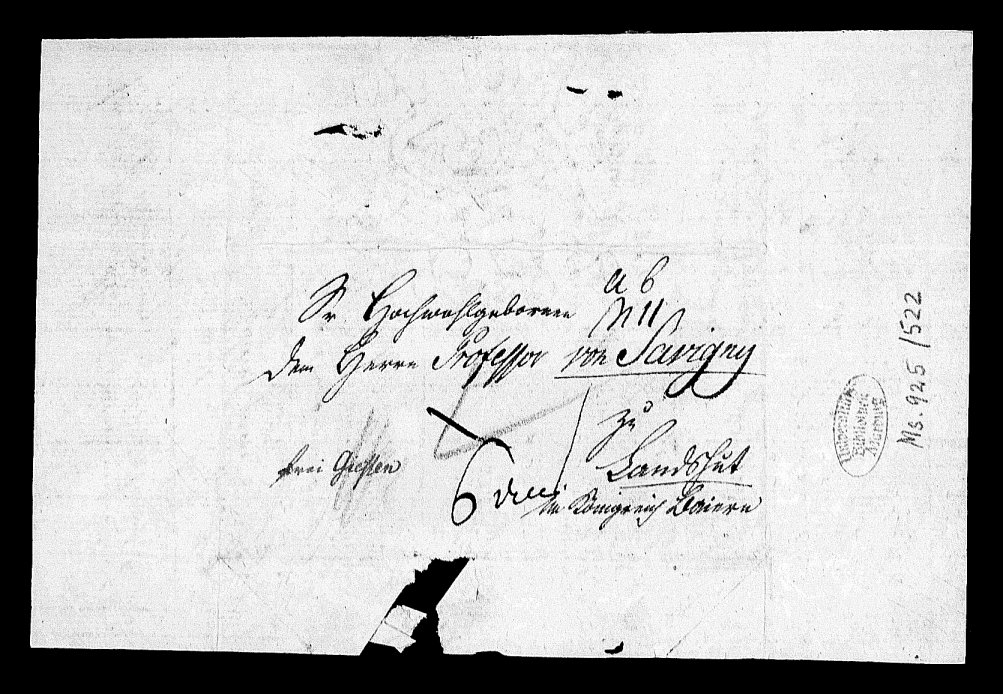 Sr. Hochwohlgebornen
dem Herrn Professor von Savigny
zu
Landshut
im Königreich Baiern
frei Giessen
6
Universitäts
Bibliothek
Marburg
Ms. 925/522